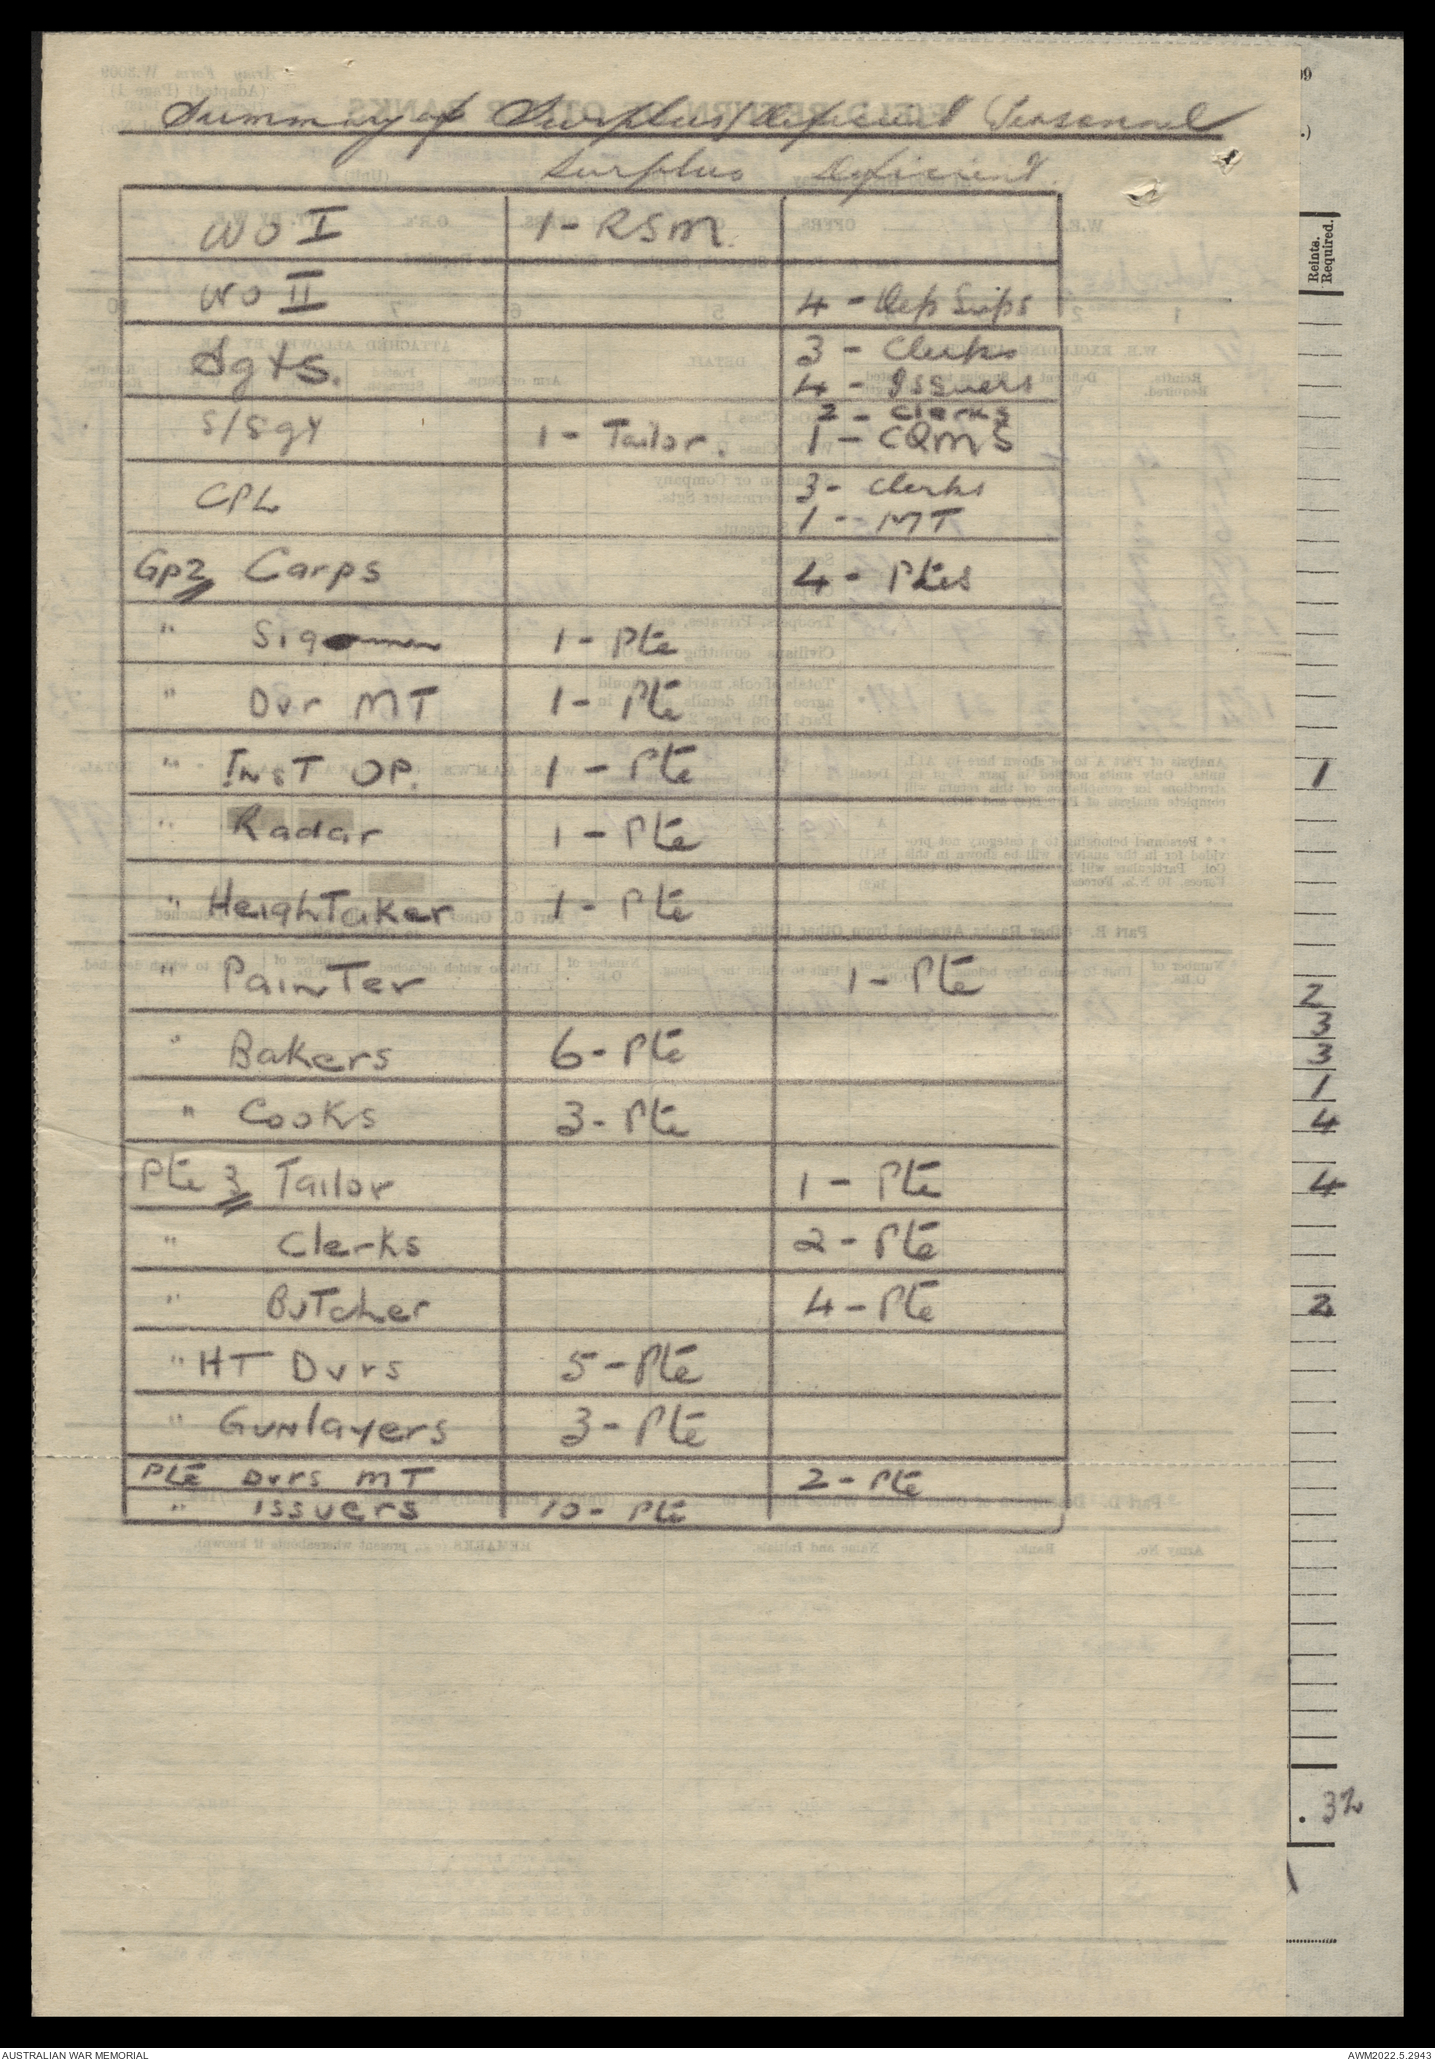 Summary of Surplus/Deficient Personnel
Surplus Deficient.
WO I 1 - RSM.
WO II 4 - Dep Sups
Sgts. 3 - Clerks
4 - Issuers
S/Sgt 1 - Tailor. 2 - Clerks
1 - CQMS
CPL 3 - Clerks
1 - MT
Gp 2 Carps 4 - Ptes
" Sig 1 - Pte
" Dvr MT 1 - Pte
" Inst OP. 1 - Pte
" Radar 1 - Pte
" HeighTaker 1 - Pte
" Painter 1 - Pte
" Bakers 6 - Pte
" Cooks 3 - Pte
Pte 3 Tailor 1 - Pte
" Clerks 2 - Pte
" Butcher 4 - Pte
" HT Dvrs 5 - Pte
" Gunlayers 3 - Pte
Pte Dvrs MT 2 - Pte
" Issuers 10 - Pte
Reints.
Required.
1
2
3
3
1
4
4
2
. 32
AUSTRALIAN WAR MEMORIAL AWM2022.5.2943